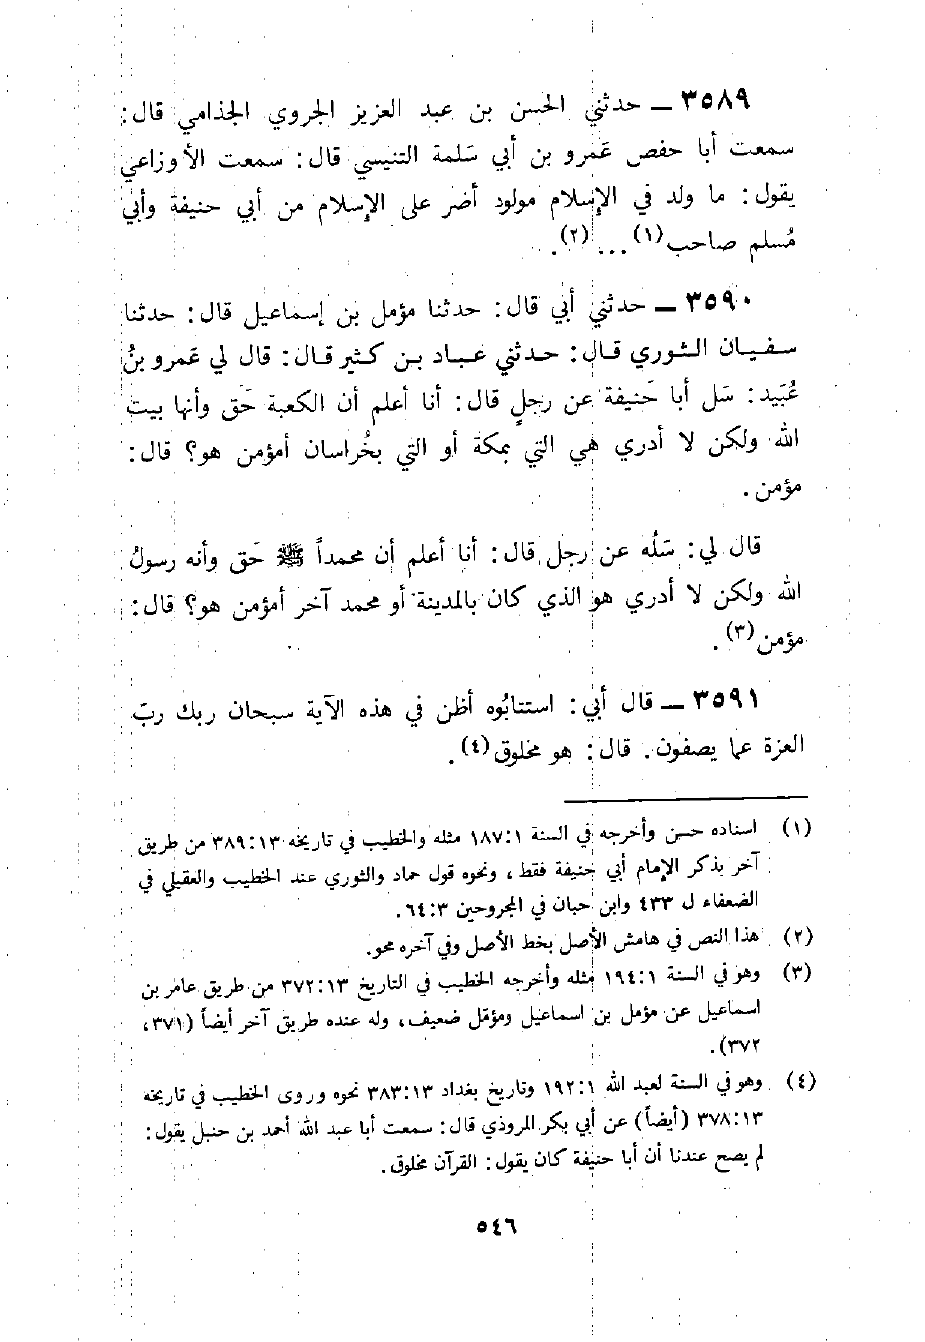 ٣٥٨٩ ـ حدثني الحسن بن عبد العزيز الجروي الجذامي قال:
سمعت أبا حفص عَمرو بن أبي سَلمة التنيسي قال: سمعت الأوزاعي
يقول: ما ولد في الإسلام مولود أضر على الإسلام من أبي حنيفة وأبي
مُسلم صاحب(١) ... (٢).
٣٥٩٠ ـ حدثني أبي قال: حدثنا مؤمل بن إسماعيل قال: حدثنا
سفيان الثوري قال: حدثني عباد بن كثير قال: قال لي عَمرو بنُ
عُبَيد: سَل أبا حَنيفة عن رجلٍ قال: أنا أعلم أن الكعبة حَق وأنها بيت
الله ولكن لا أدري هي التي بمكة أو التي بخُراسان أمؤمن هو؟ قال:
مؤمن.
قال لي: سَلُه عن رجل قال: أنا أعلم أن محمداً ﷺ حَق وأنه رسولُ
الله ولكن لا أدري هو الذي كان بالمدينة أو محمد آخر أمؤمن هو؟ قال:
مؤمن(٣).
٣٥٩١ ـ قال أبي: استتابُوه أظن في هذه الآية سبحان ربك ربّ
العزة عما يصفون. قال: هو مخلوق(٤).
(١) اسناده حسن وأخرجه في السنة ١٨٧:١ مثله والخطيب في تاريخه ٣٨٩:١٣ من طريق
آخر بذكر الإمام أبي حنيفة فقط، ونحوه قول حماد والثوري عند الخطيب والعقيلي في
الضعفاء ل ٤٣٣ وابن حبان في المجروحين ٦٤:٣.
(٢) هذا النص في هامش الأصل بخط الأصل وفي آخره محو.
(٣) وهو في السنة ١٩٤:١ مثله وأخرجه الخطيب في التاريخ ٣٧٢:١٣ من طريق عامر بن
اسماعيل عن مؤمل بن اسماعيل ومؤمل ضعيف، وله عنده طريق آخر أيضاً (٣٧١،
٣٧٢).
(٤) وهو في السنة لعبد الله ١٩٢:١ وتاريخ بغداد ٣٨٣:١٣ نحوه وروى الخطيب في تاريخه
٣٧٨:١٣ (أيضاً) عن أبي بكر المروذي قال: سمعت أبا عبد الله أحمد بن حنبل يقول:
لم يصح عندنا أن أبا حنيفة كان يقول: القرآن مخلوق.
٥٤٦